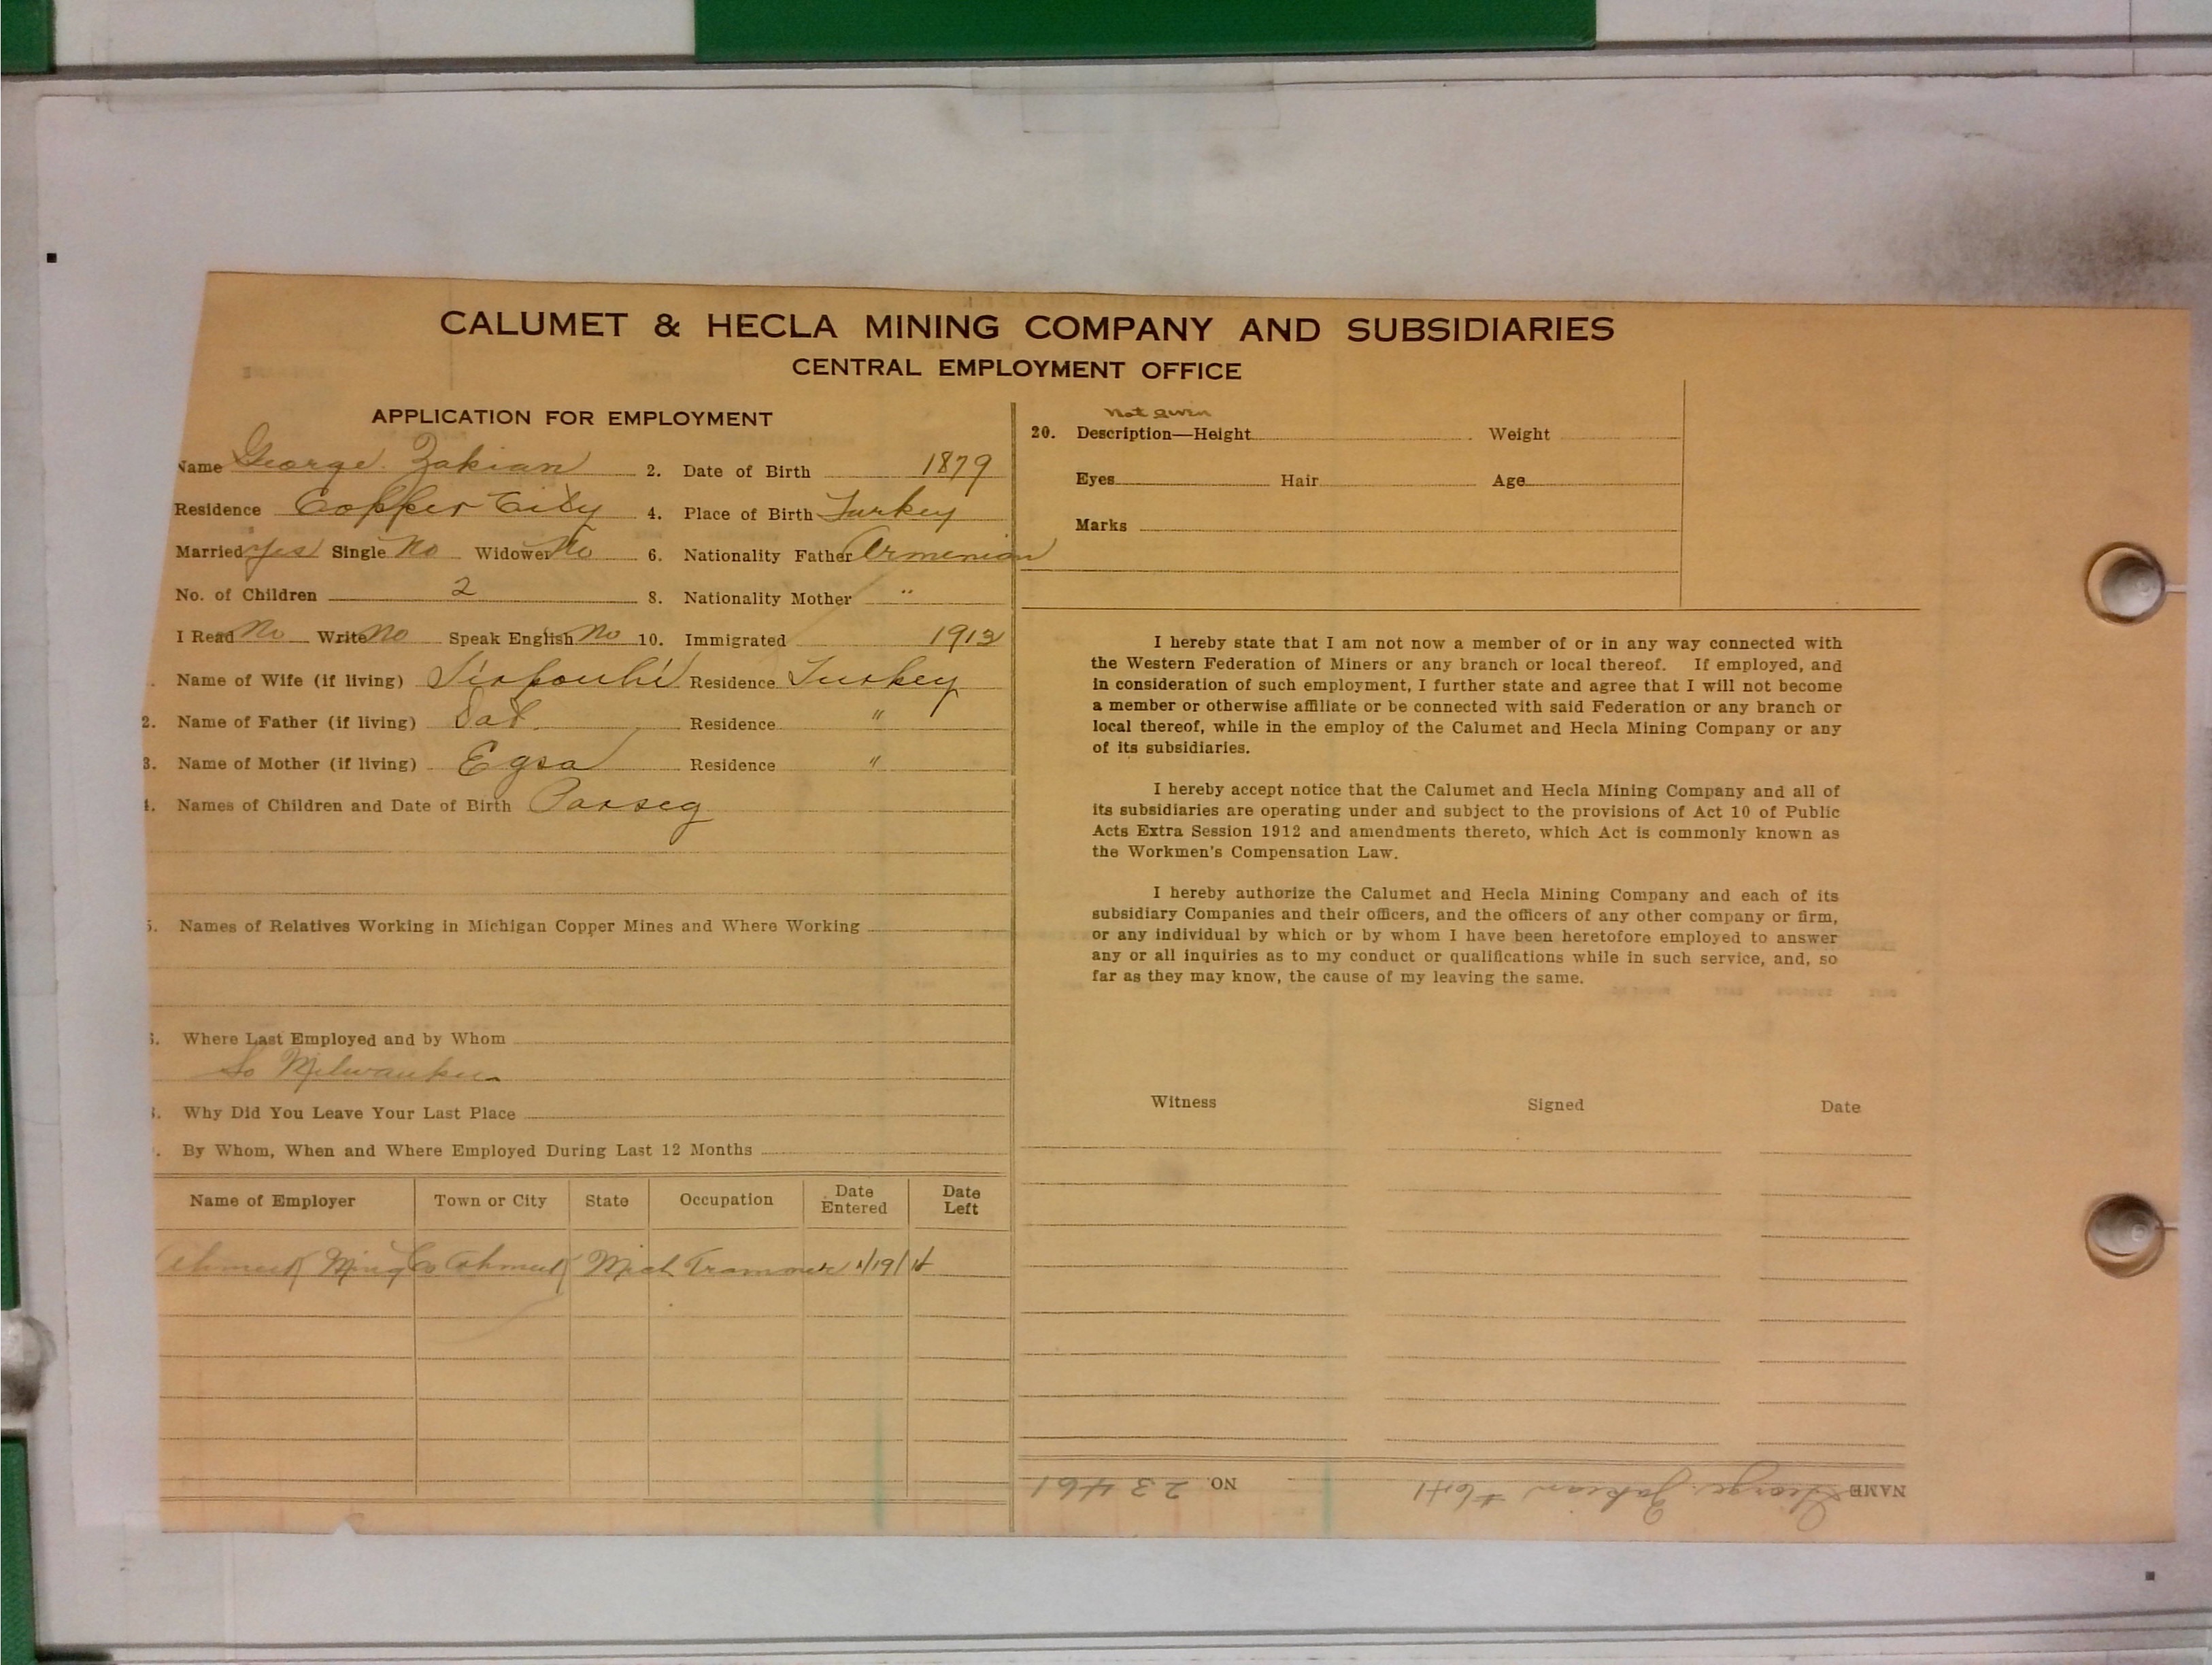 CALUMET & HECLA MINING COMPANY AND SUBSIDIARIES
CENTRAL EMPLOYMENT OFFICE
APPLICATION FOR EMPLOYMENT
Name George Zakian 2. Date of Birth 1879
Residence Copper City 4. Place of Birth Turkey
Married yes Single No Widower No 6. Nationality Father Armenian
No. of Children 2 8. Nationality Mother "
I Read No Write No Speak English No 10. Immigrated 1912
. Name of Wife (if living) Sirpouhi Residence Turkey
2. Name of Father (if living) Residence "
3. Name of Mother (if living) Egsa Residence "
4. Names of Children and Date of Birth Parseg
5. Names of Relatives Working in Michigan Copper Mines and Where Working
Where Last Employed and by Whom
So Milwaukee
Why Did You Leave Your Last Place
. By Whom, When and Where Employed During Last 12 Months
Name of Employer Town or City State Occupation Date Entered Date Left
Ahmeek Ming Co Ahmeek Mich Trammer /19/14
not given
20. Description—Height Weight
Eyes Hair Age
Marks
I hereby state that I am not now a member of or in any way connected with
the Western Federation of Miners or any branch or local thereof. If employed, and
in consideration of such employment, I further state and agree that I will not become
a member or otherwise affiliate or be connected with said Federation or any branch or
local thereof, while in the employ of the Calumet and Hecla Mining Company or any
of its subsidiaries.
I hereby accept notice that the Calumet and Hecla Mining Company and all of
its subsidiaries are operating under and subject to the provisions of Act 10 of Public
Acts Extra Session 1912 and amendments thereto, which Act is commonly known as
the Workmen's Compensation Law.
I hereby authorize the Calumet and Hecla Mining Company and each of its
subsidiary Companies and their officers, and the officers of any other company or firm,
or any individual by which or by whom I have been heretofore employed to answer
any or all inquiries as to my conduct or qualifications while in such service, and, so
far as they may know, the cause of my leaving the same.
Witness Signed Date
NAME George Zakian NO. 23461